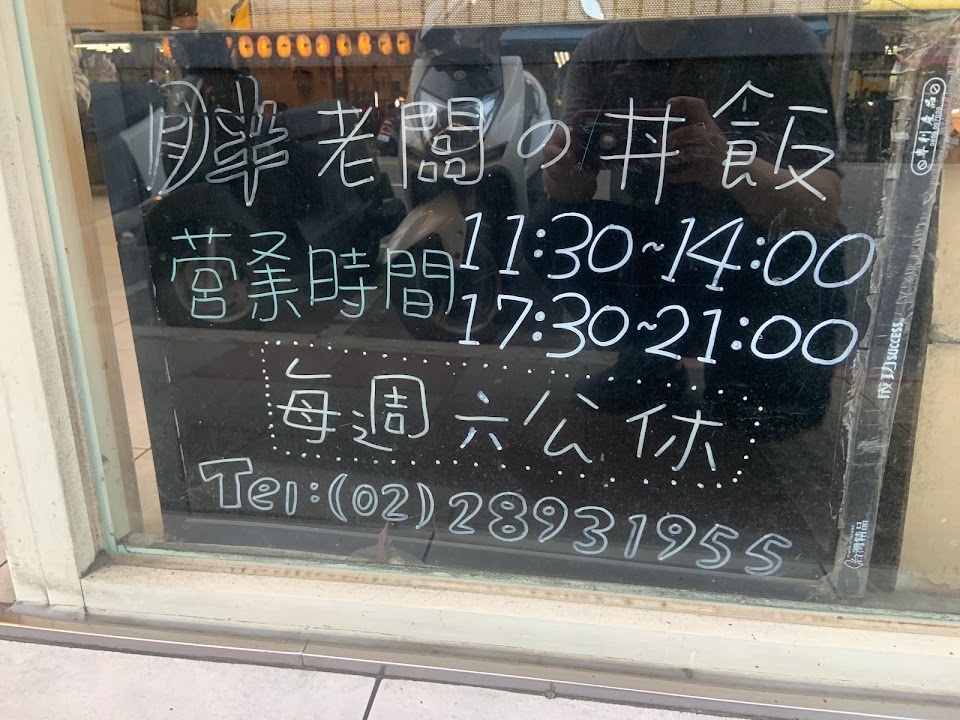 胖老闆の丼飯
営業時間 11:30~14:00
17:30~21:00
每週六公休
Tel:(02)28931955
專利產品
成功 SUCCESS
台灣精品